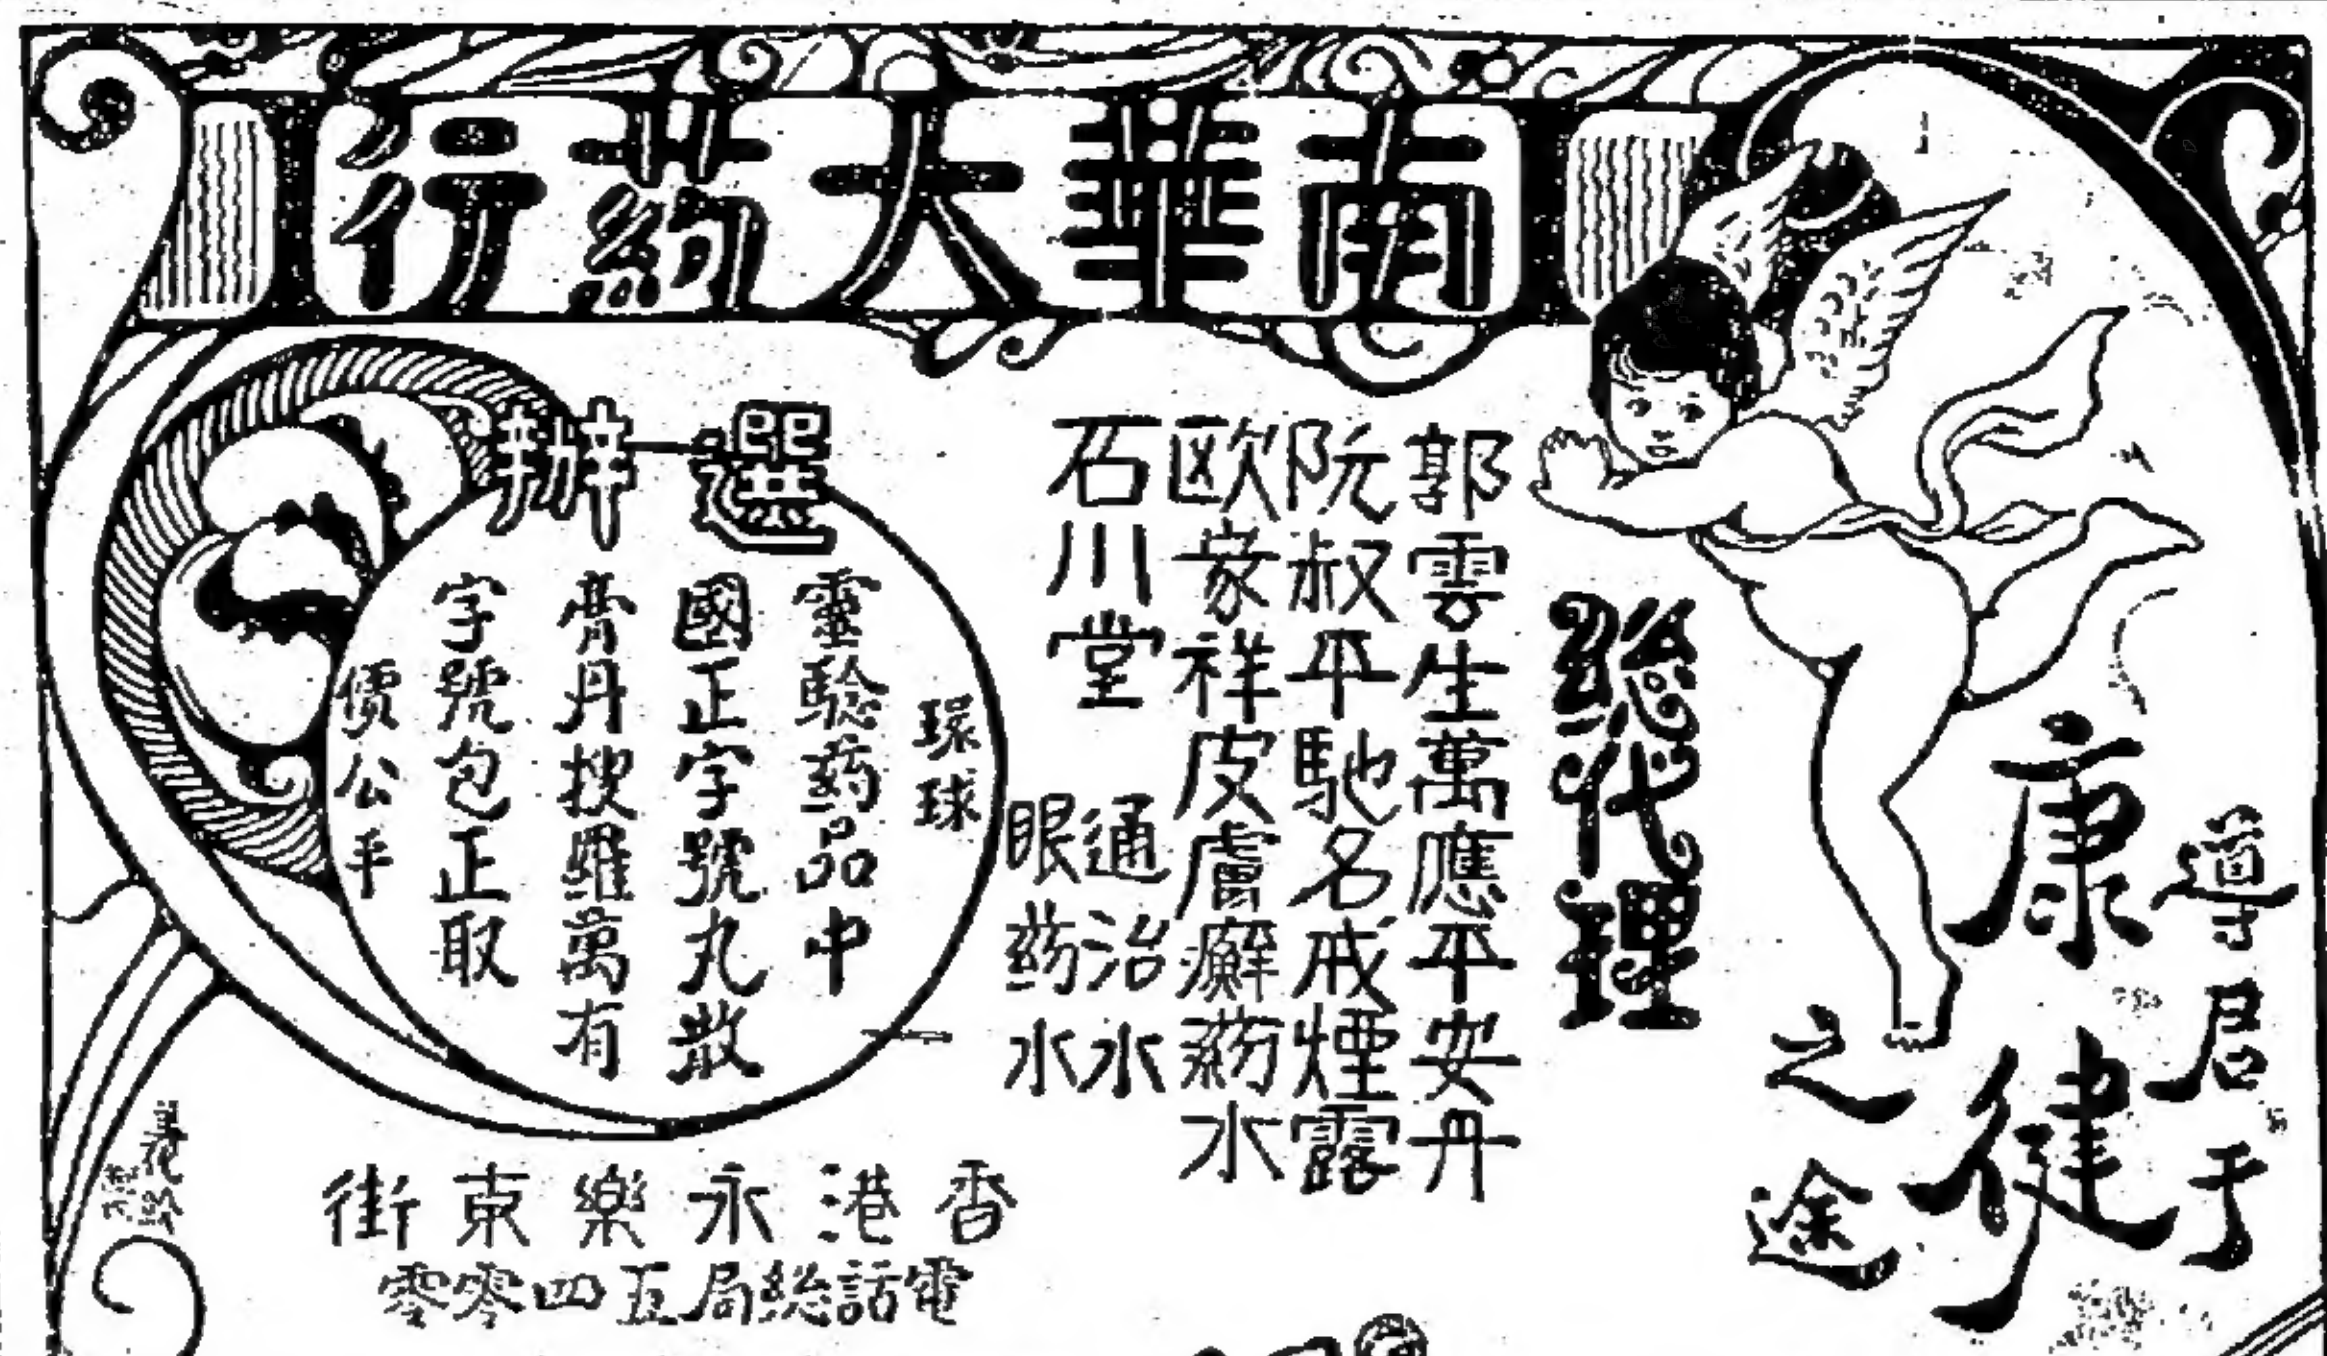 南華大葯行
導君于
康健
之途
總代理
郭雲生萬應平安丹
阮叔平馳名戒煙露
欧家祥皮膚癬葯水
石川堂
通治水
眼葯水
選辦
環球
靈驗葯品中
國正字號丸散
膏丹搜羅萬有
字號包正取
價公平
香港永樂東街
電話總局五四零零